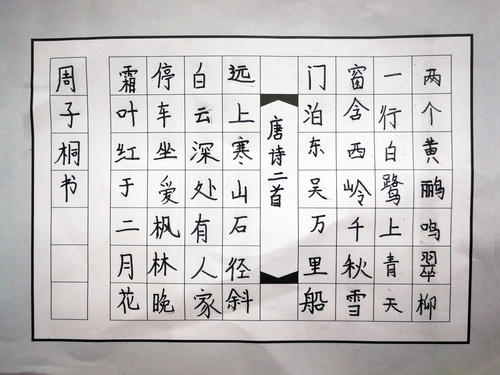 两个黄鹂鸣翠柳
一行白鹭上青天
窗含西岭千秋雪
门泊东吴万里船
唐诗二首
远上寒山石径斜
白云深处有人家
停车坐爱枫林晚
霜叶红于二月花
周子桐书